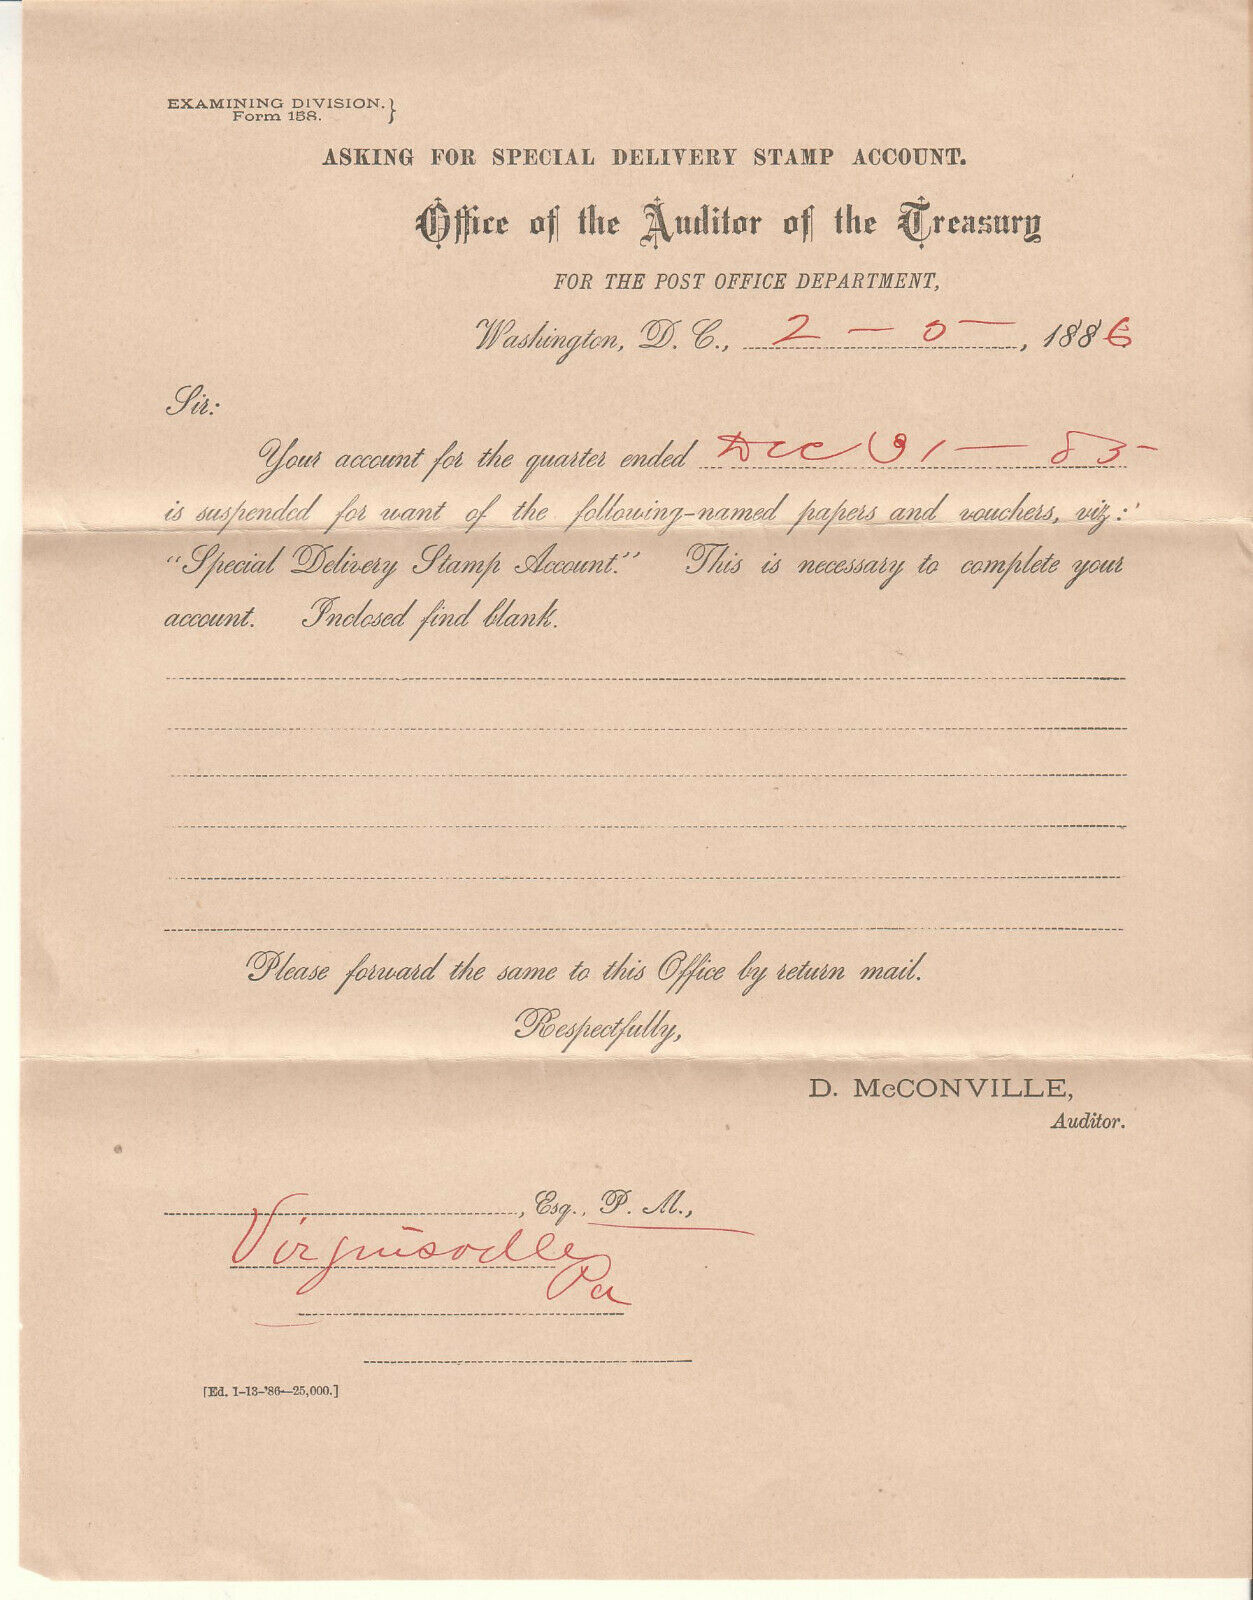 EXAMINING DIVISION. }
Form 158.
ASKING FOR SPECIAL DELIVERY STAMP ACCOUNT.
Office of the Auditor of the Treasury
FOR THE POST OFFICE DEPARTMENT,
Washington, D. C., 2 – 0 –, 1886
Sir:
Your account for the quarter ended Dec 31 – 85
is suspended for want of the following-named papers and vouchers, viz:
"Special Delivery Stamp Account." This is necessary to complete your
account. Inclosed find blank.
Please forward the same to this Office by return mail.
Respectfully,
D. McCONVILLE,
Auditor.
, Esq., P. M.,
Virginsville
Pa
[Ed. 1-13-'86—25,000.]